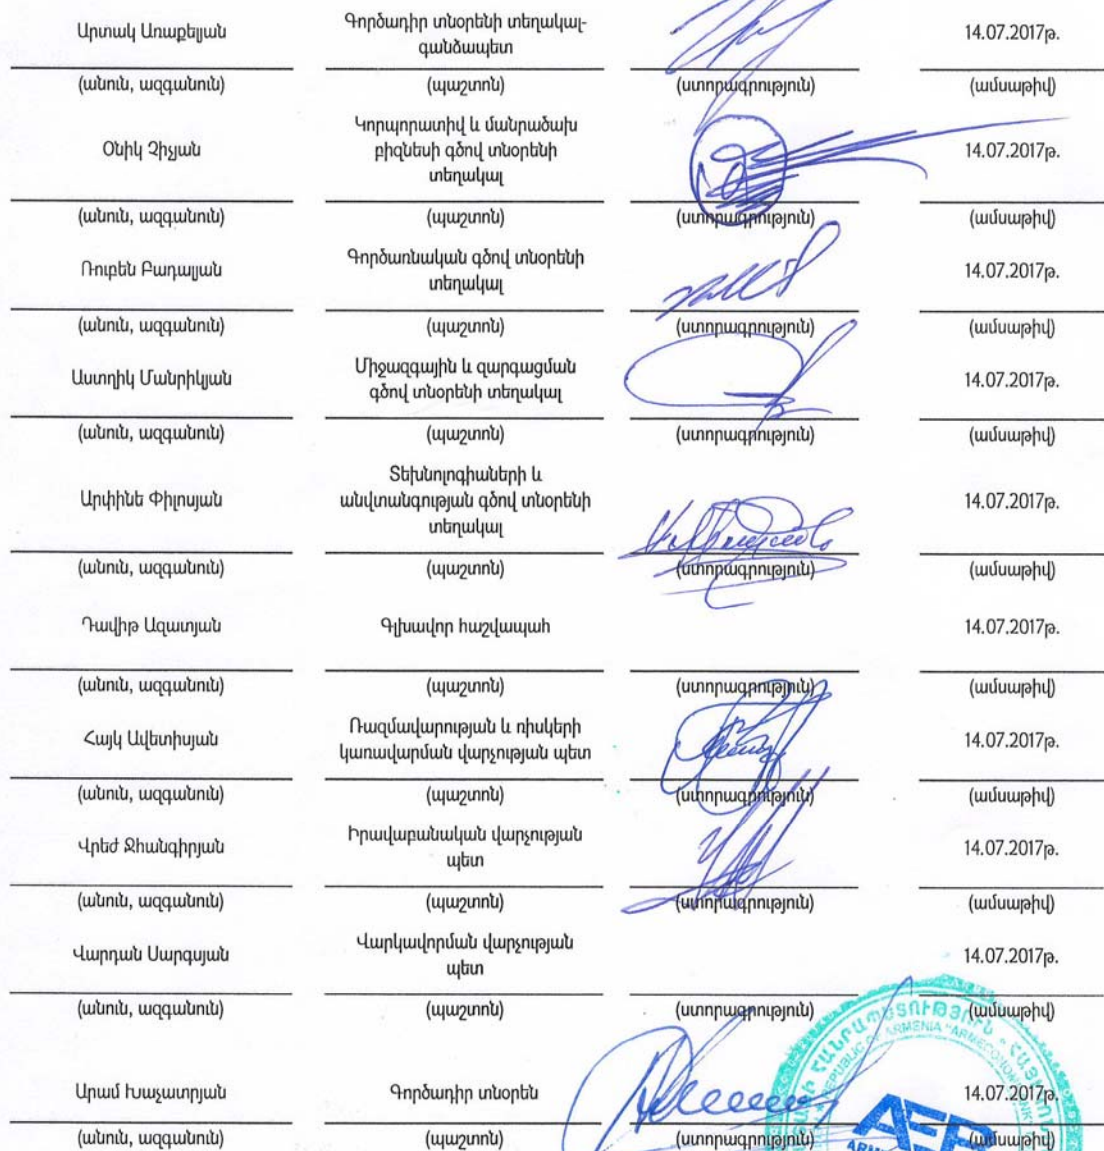 Արտակ Առաքելյան
Գործադիր տնօրենի տեղակալ-
գանձապետ
14.07.2017թ.
(անուն, ազգանուն) (պաշտոն) (ստորագրություն) (ամսաթիվ)
Օնիկ Չիչյան
Կորպորատիվ և մանրածախ
բիզնեսի գծով տնօրենի
տեղակալ
14.07.2017թ.
(անուն, ազգանուն) (պաշտոն) (ստորագրություն) (ամսաթիվ)
Ռուբեն Բադալյան
Գործառնական գծով տնօրենի
տեղակալ
14.07.2017թ.
(անուն, ազգանուն) (պաշտոն) (ստորագրություն) (ամսաթիվ)
Աստղիկ Մանրիկյան
Միջազգային և զարգացման
գծով տնօրենի տեղակալ
14.07.2017թ.
(անուն, ազգանուն) (պաշտոն) (ստորագրություն) (ամսաթիվ)
Արփինե Փիլոսյան
Տեխնոլոգիաների և
անվտանգության գծով տնօրենի
տեղակալ
14.07.2017թ.
(անուն, ազգանուն) (պաշտոն) (ստորագրություն) (ամսաթիվ)
Դավիթ Ազատյան
Գլխավոր հաշվապահ
14.07.2017թ.
(անուն, ազգանուն) (պաշտոն) (ստորագրություն) (ամսաթիվ)
Հայկ Ավետիսյան
Ռազմավարության և ռիսկերի
կառավարման վարչության պետ
14.07.2017թ.
(անուն, ազգանուն) (պաշտոն) (ստորագրություն) (ամսաթիվ)
Վրեժ Ջհանգիրյան
Իրավաբանական վարչության
պետ
14.07.2017թ.
(անուն, ազգանուն) (պաշտոն) (ստորագրություն) (ամսաթիվ)
Վարդան Սարգսյան
Վարկավորման վարչության
պետ
14.07.2017թ.
(անուն, ազգանուն) (պաշտոն) (ստորագրություն) (ամսաթիվ)
Արամ Խաչատրյան
Գործադիր տնօրեն
14.07.2017թ.
(անուն, ազգանուն) (պաշտոն) (ստորագրություն) (ամսաթիվ)
REPUBLIC OF ARMENIA
AEB